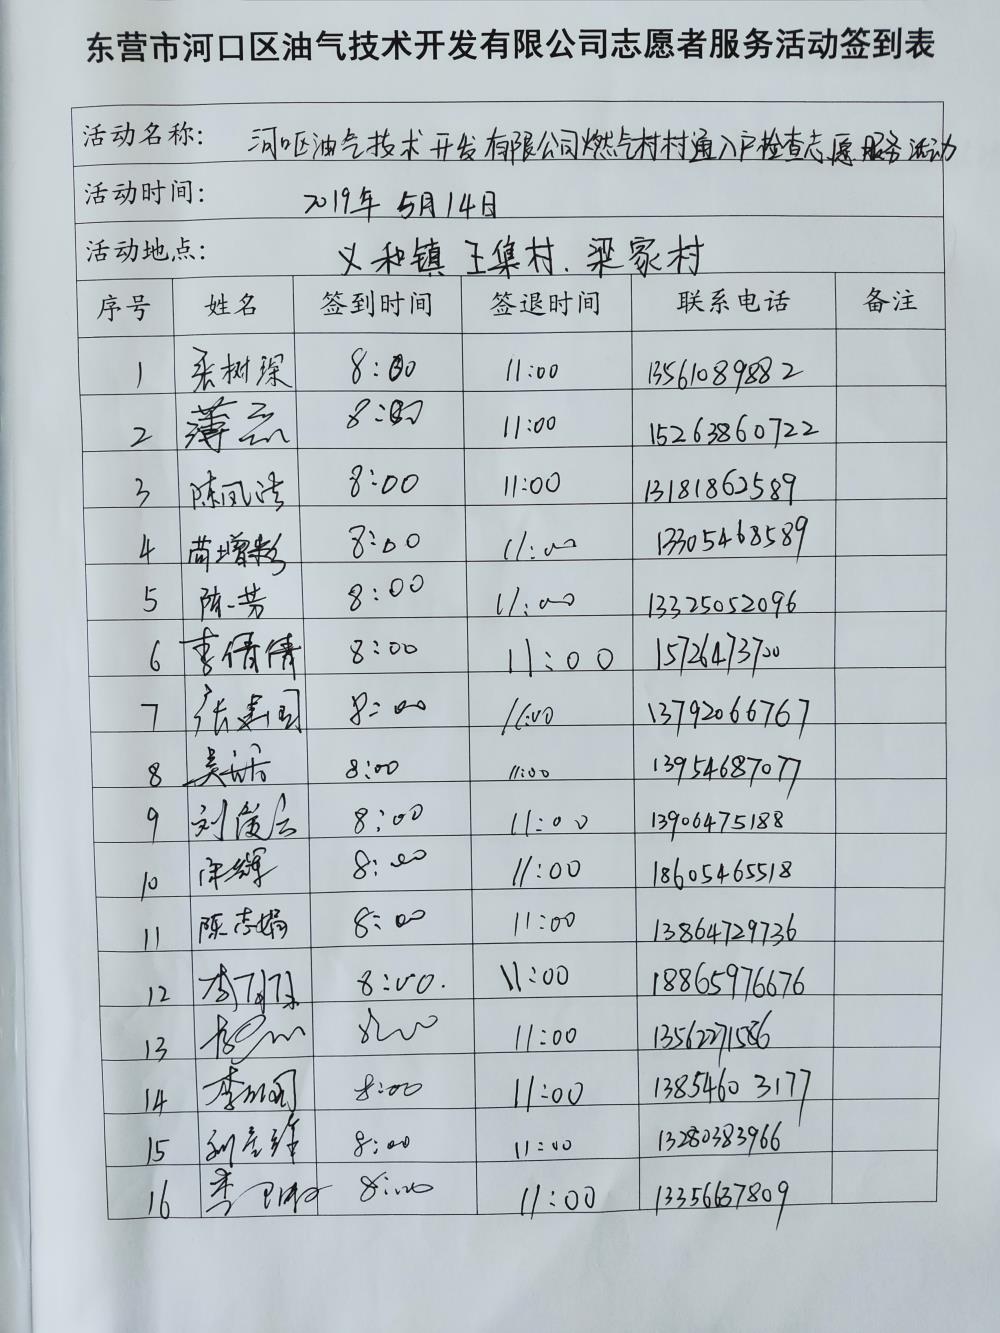 东营市河口区油气技术开发有限公司志愿者服务活动签到表
活动名称: 河口区油气技术开发有限公司燃气村村通入户检查志愿服务活动
活动时间: 2019年5月14日
活动地点: 义和镇王集村.梁家村
序号 姓名 签到时间 签退时间 联系电话 备注
1 张树琛 8:00 11:00 13561089882
2 薄磊 8:00 11:00 15263860722
3 陈凤洁 8:00 11:00 13181862589
4 苗增彩 8:00 11:00 13305468589
5 陈芳 8:00 11:00 13325052096
6 李倩倩 8:00 11:00 15726473700
7 张建国 8:00 11:00 13792066767
8 8:00 11:00 13954687077
9 刘俊云 8:00 11:00 13906475188
10 8:00 11:00 18605465518
11 陈志娟 8:00 11:00 13864729736
12 8:00. 11:00 18865976676
13 8:00 11:00 13562271586
14 8:00 11:00 1385460 3177
15 8:00 11:00 13280383966
16 8:00 11:00 13356637809